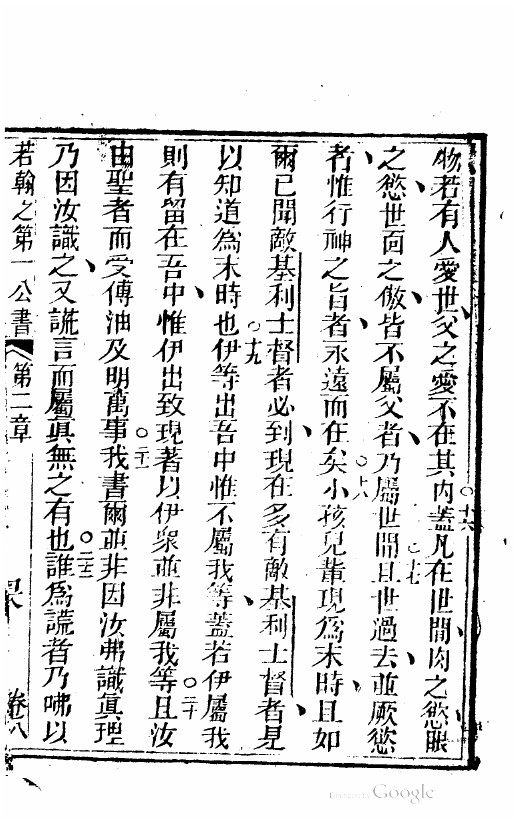 物若有人愛世父之愛不在其內蓋○十六凡在世間肉之慾眼
之慾世面之傲皆不屬父者乃屬世間○十七且世過去並厥慾
者惟行神之旨者永遠而在矣○十八小孩兒輩現為末時且如
爾已聞敵基利士督者必到現在多有敵基利士督者是
以知道為末時也○十九伊等出吾中惟不屬我等蓋若伊屬我
則有留在吾中惟伊出致現著以伊眾並非屬我等○二十且汝
由聖者而受傳油及明萬事○二一我書爾並非因汝弗識真理
乃因汝識之又謊言而屬真無之有也○二二誰為謊者乃咈以
若翰之第一公書 第二章 卷八
Digitized by Google